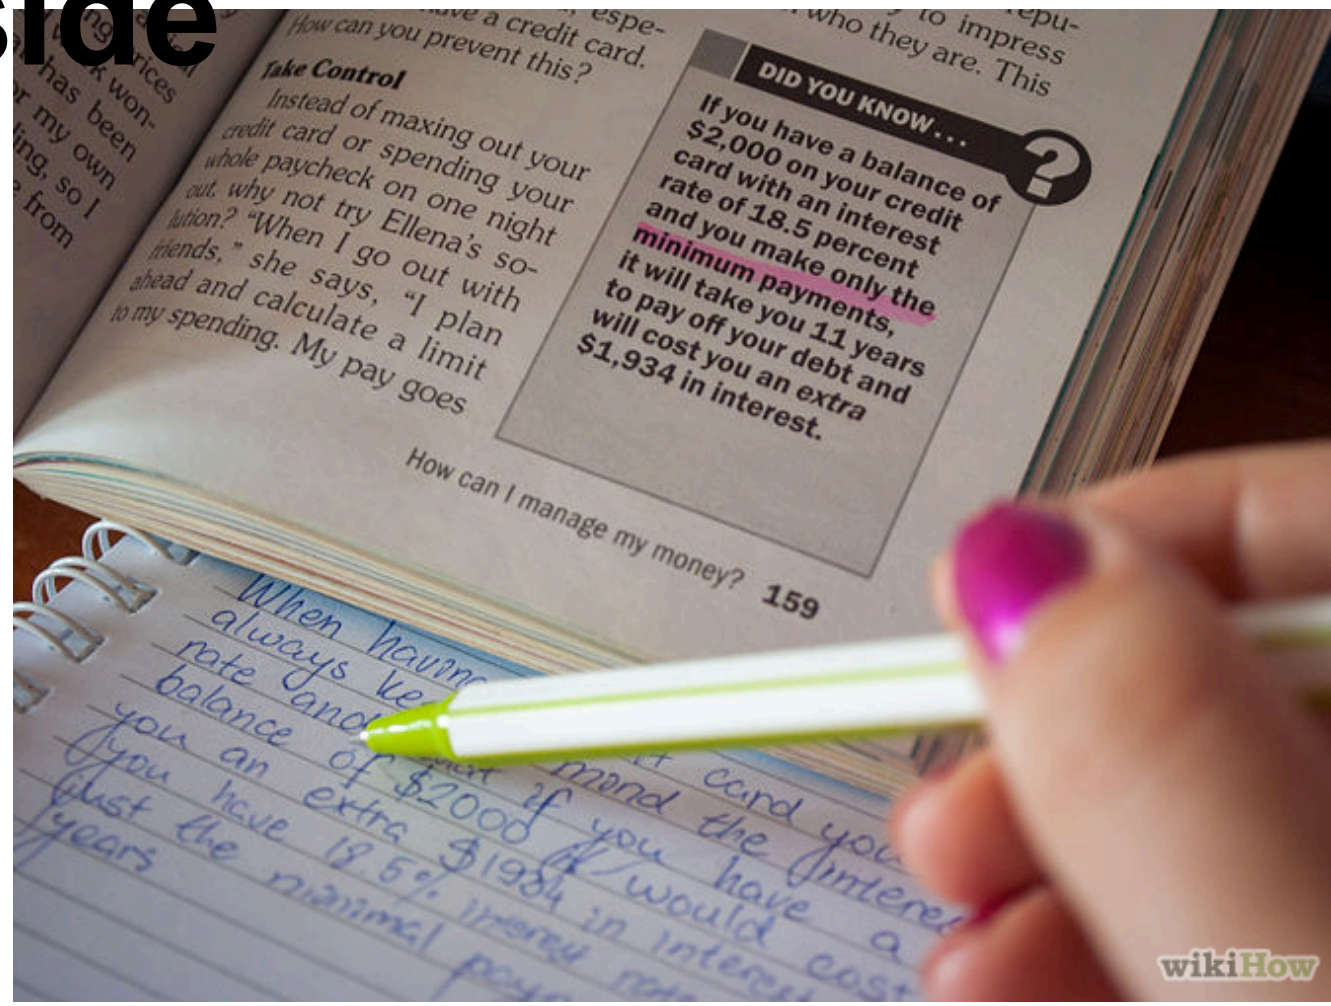 side
rices
k won-
has been
r my own
ling, so I
from
espe-
have a credit card.
How can you prevent this?
Take Control
Instead of maxing out your
credit card or spending your
whole paycheck on one night
out, why not try Ellena's so-
lution? "When I go out with
friends," she says, "I plan
ahead and calculate a limit
to my spending. My pay goes
repu-
to impress
who they are. This
DID YOU KNOW...
?
If you have a balance of
$2,000 on your credit
card with an interest
rate of 18.5 percent
and you make only the
minimum payments,
it will take you 11 years
to pay off your debt and
will cost you an extra
$1,934 in interest.
How can I manage my money? 159
When having card you
always ke mind the interes
rate and if you have a
balance of $2000 it would cost
you an extra $1934 in interest
you have 18.5% interest rate
just the minimal paym
years
wikiHow